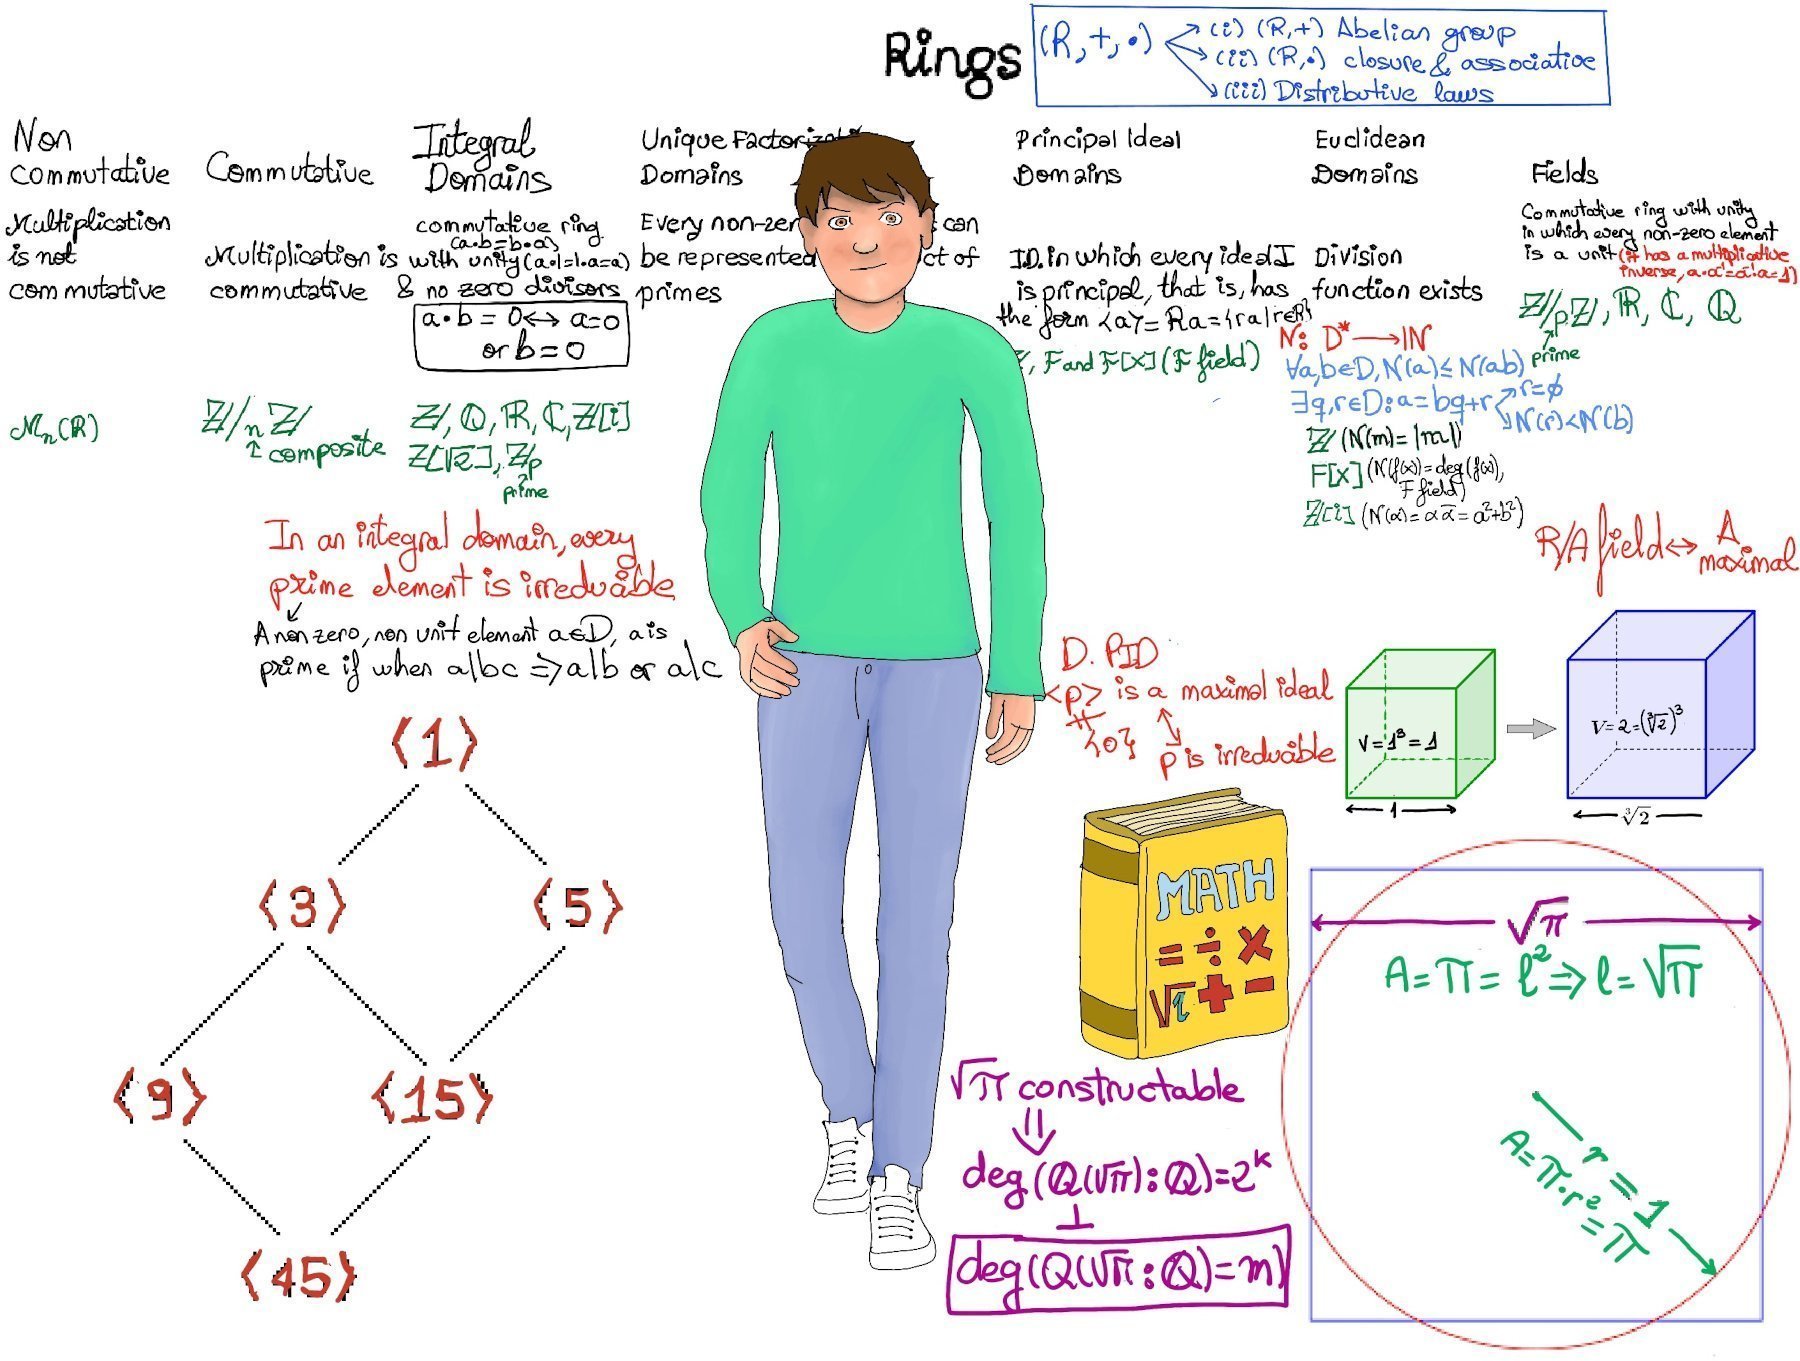 Rings
(R,+,•)
(i) (R,+) Abelian group
(ii) (R,•) closure & associative
(iii) Distributive laws
Non
commutative
Multiplication
is not
commutative
Mn(R)
Commutative
Multiplication is
commutative
Z/nZ
composite
Integral
Domains
commutative ring
(a•b=b•a)
with unity (a•1=1•a=a)
& no zero divisors
a•b = 0 ↔ a=0
or b=0
Z, Q, R, C, Z[i]
Z[√2], Zp
prime
Unique
Domains
Every non-zer can
be represented ct of
primes
Principal Ideal
Domains
I.D. in which every ideal I
is principal, that is, has
the form <a> = Ra = {ra|r∈R}
, F and F[x] (F field)
Euclidean
Domains
Division
function exists
N: D* → IN
∀a,b∈D, N(a) ≤ N(ab)
∃q,r∈D: a=bq+r
r=ϕ
N(r)<N(b)
Z (N(m) = |m|)
F[x] (N(f(x))=deg(f(x),
F field)
Z[i] (N(α)= αᾱ = a²+b²)
Fields
Commutative ring with unity
in which every non-zero element
is a unit (it has a multiplicative
inverse, a•a'=a'•a=1)
Z/pZ, R, C, Q
prime
R/A field ↔ A
maximal
In an integral domain, every
prime element is irreduable
A non zero, non unit element a∈D, a is
prime if when a|bc ⇒ a|b or a|c
<1>
<3>
<5>
<9>
<15>
<45>
D. PID
<p> is a maximal ideal
≠
{0}
p is irreduable
V=1³=1
1
V=2=(∛2)³
∛2
MATH
= ÷ ×
√ + −
√π constructable
⇓
deg(Q(√π):Q)=2ᵏ
⊥
deg(Q(√π:Q)=m)
√π
A=π=l²⇒l=√π
r=1
A=π•r²=π